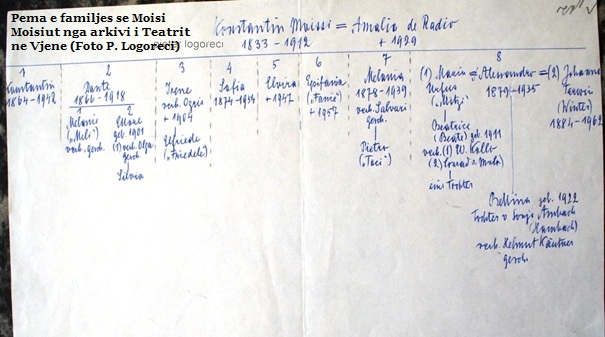 Pema e familjes se Moisi
Moisiut nga arkivi i Teatrit
ne Vjene (Foto P. Logoreci)
logoreci
Konstantin Moissi = Amalia de Radio
1833 - 1912 + 1929
1 2 3 4 5 6 7 8
Konstantin
1864-1942
Dante
1866-1918
1 2
Melanie
("Meli")
verh. gesch.
geb. 1901
(1) verh. Olga
gesch.
Silvia
Irene
verh.
+ 1964
Elfriede
("Friedele")
Sofia
1874-1954
Elvira
+ 1947
Epifania
("Fanie")
+ 1957
Melania
1878-1939
verh. Salvari
gesch.
Pietro
("Taci")
(1) Maria = Alessandro = (2) Johanna
Urfus
("Mitzi")
1879-1935
Terwin
(Winter)
1884-1962
Beatrice
(Beate) geb. 1911
verh. (1) W. Kollo
(2)
eine Tochter
Bettina geb. 1922
Tochter v.
Ambach
(Hambach)
verh. Helmut Käutner
gesch.